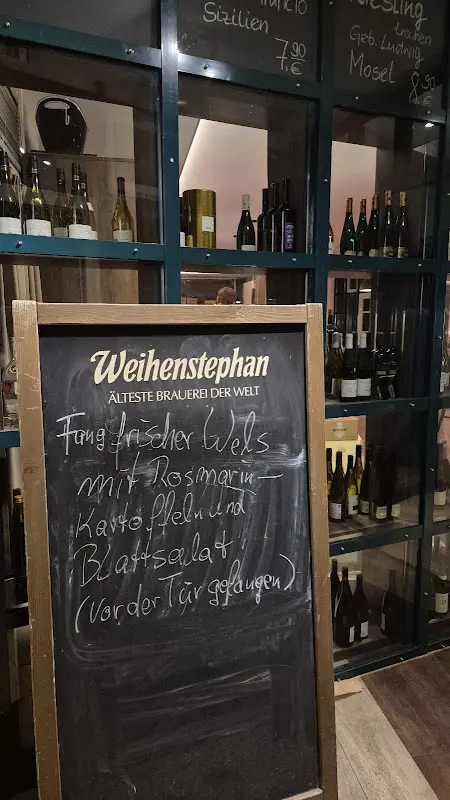 Sizilien
7,90 €
Riesling
trocken
Geb. Ludwig
Mosel
8,90 €
Weihenstephan
ÄLTESTE BRAUEREI DER WELT
Fangfrischer Wels
mit Rosmarin-
Kartoffeln und
Blattsalat
(Vor der Tür gefangen)